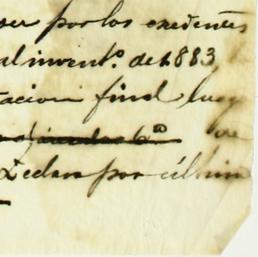 ser por los exedentes
al invent.o de 1883
tacion final luego
Declara por última